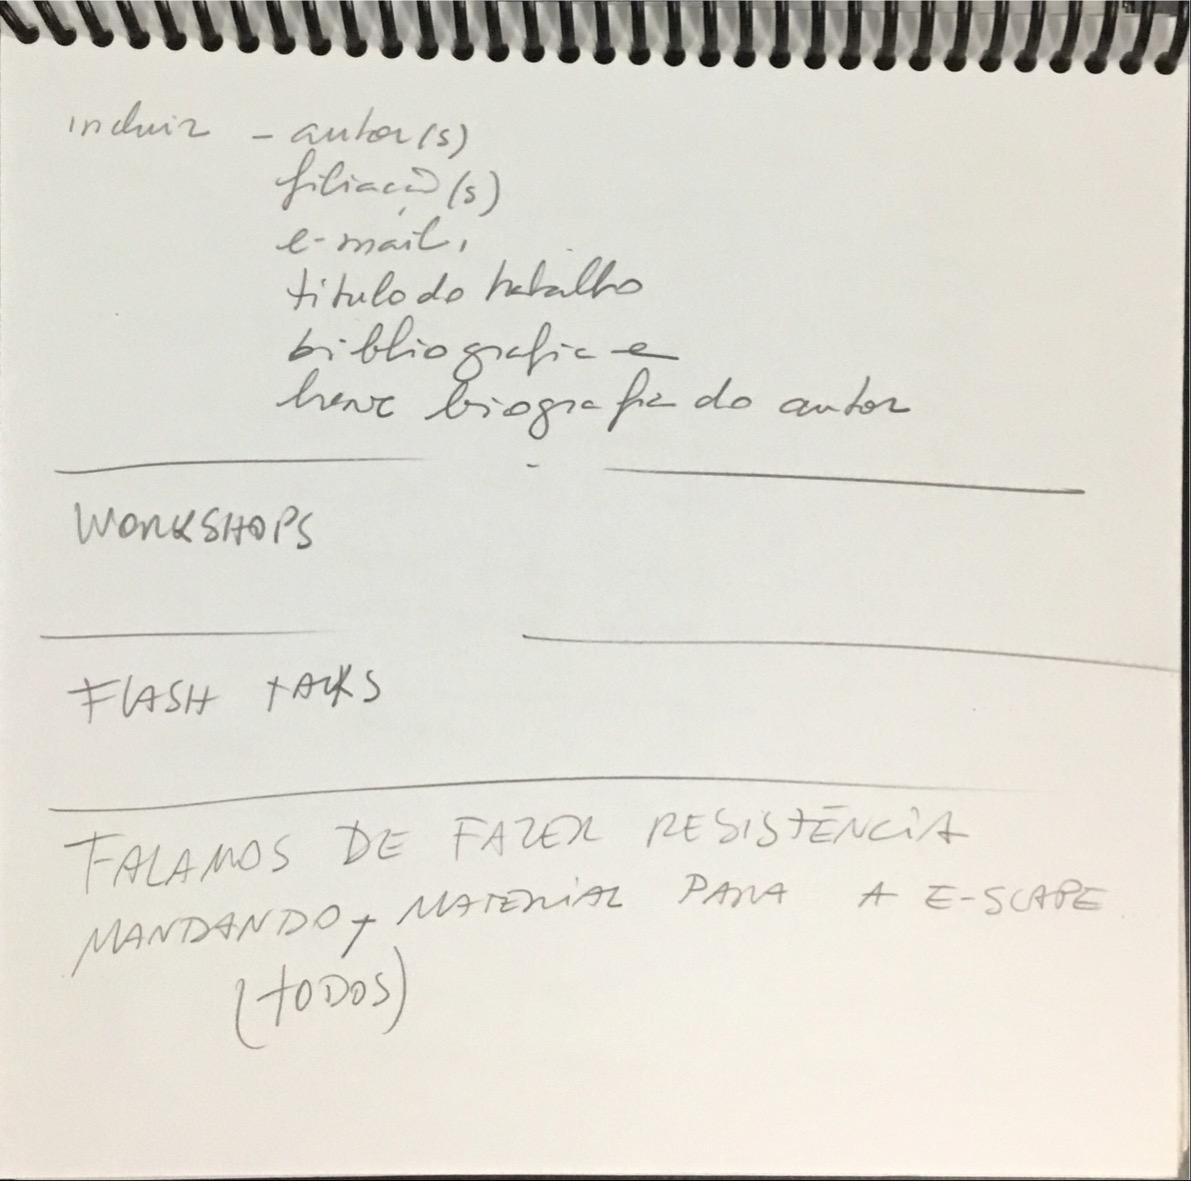 incluir - autor(s)
filiação(s)
e-mail,
titulo do trabalho
bibliografia e
breve biografia do autor
WORKSHOPS
FLASH TALKS
FALAMOS DE FAZER RESISTÊNCIA
MANDANDO + MATERIAL PARA A E-SCAPE
(TODOS)